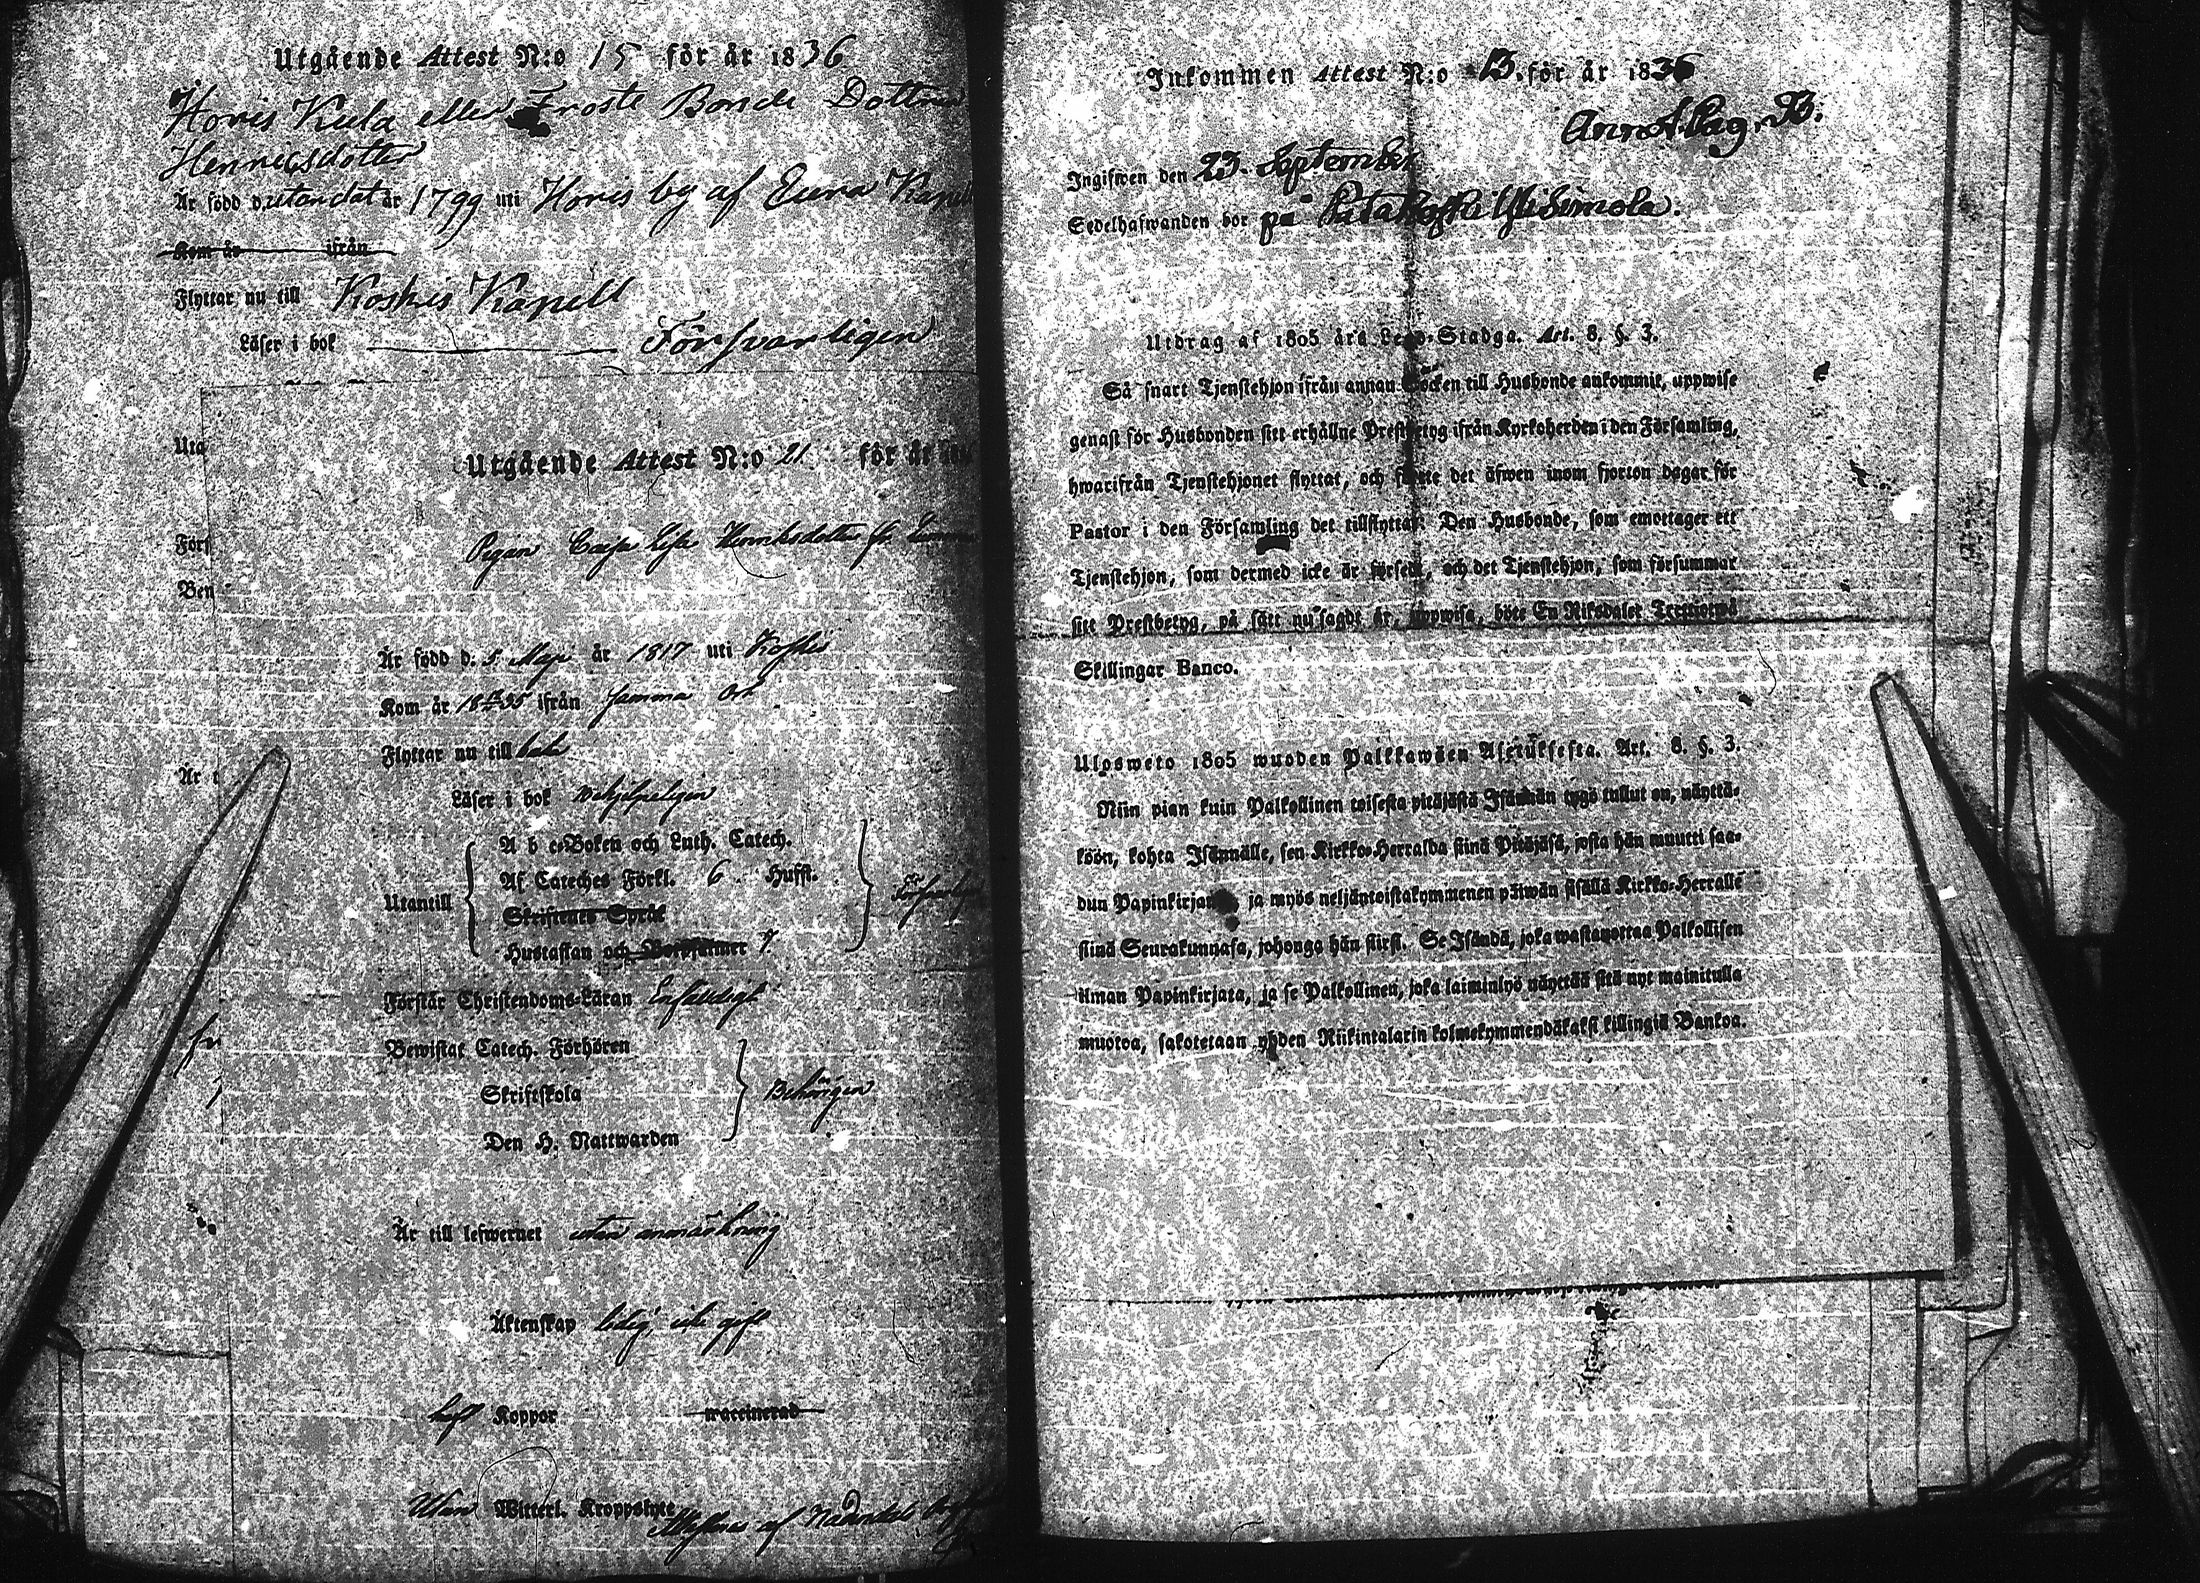 Utgående Attest N:o 15 för år 1836
Horris Kula eller Froste Bonde Dottren
Henricsdotter
Är född d. utan dat år 1799 uti Horris by af Eura Kapell
Kom år ifrån
Flyttar nu till Koskis Kapell
Läser i bok Försvarligen
Uta
Förs
Ben
Är t
Utgående Attest N:o 21 för år
Pigan Caisa Lisa Henriksdotter fr.
Är född d. 5 Maji år 1817 uti Koskis
Kom år 1835 ifrån samma Ort
Flyttar nu till baka
Läser i bok
Utantill
A b c-Boken och Luth. Catech.
Af Cateches Förkl. 6 Hufst.
Skriftenes Språk
Hustaflan och Botpsalmer 7
Förstår Christendoms-Läran Enfaldigt
Bewistat Catech. Förhören
Skriftskola
Behörigen
Den H. Nattwarden
Är till lefwernet utan anmärkning
Äktenskap ledig, icke gift
haft Koppor waccinerad
Utan Witterl. Kroppslyte
Attesteras af Nådendals
Inkommen Attest N:o 13. för år 1836
Annot. Pag. 33.
Ingifwen den 23. September
Sedelhafwanden bor på Patakoski Ylisimola.
Utdrag af 1805 års Lego-Stadga. Art. 8. §. 3.
Så snart Tjenstehjon ifrån annan Socken till Husbonde ankommit, uppwise
genast för Husbonden sitt erhållne Prestbetyg ifrån Kyrkoherden i den Församling,
hwarifrån Tjenstehjonet flyttat, och förete det äfwen inom fjorton dagar för
Pastor i den Församling det tillflyttat. Den Husbonde, som emottager ett
Tjenstehjon, som dermed icke är försedt, och det Tjenstehjon, som försummar
sitt Prestbetyg, på sätt nu sagdt är, uppwisa, böte En Riksdaler Trettiotwå
Skillingar Banco.
Ulosweto 1805 wuoden Palkkawäen Asetuksesta. Art. 8. §. 3.
Niin pian kuin Palkollinen toisesta pitäjästä Isännän tygö tullut on, näyttä-
köön, kohta Isännälle, sen Kirkko-Herralda siinä Pitäjäsä, josta hän muutti saa-
dun Papinkirjansa, ja myös neljäntoistakymmenen päiwän sisällä Kirkko-Herralle
siinä Seurakunnasa, johonga hän siirsi. Se Isändä, joka wastanottaa Palkollisen
ilman Papinkirjata, ja se Palkollinen, joka laiminlyö näyttää sitä nyt mainitulla
muotoa, sakotetaan yhden Riikintalarin kolmekymmendäkaksi killingiä Bankoa.